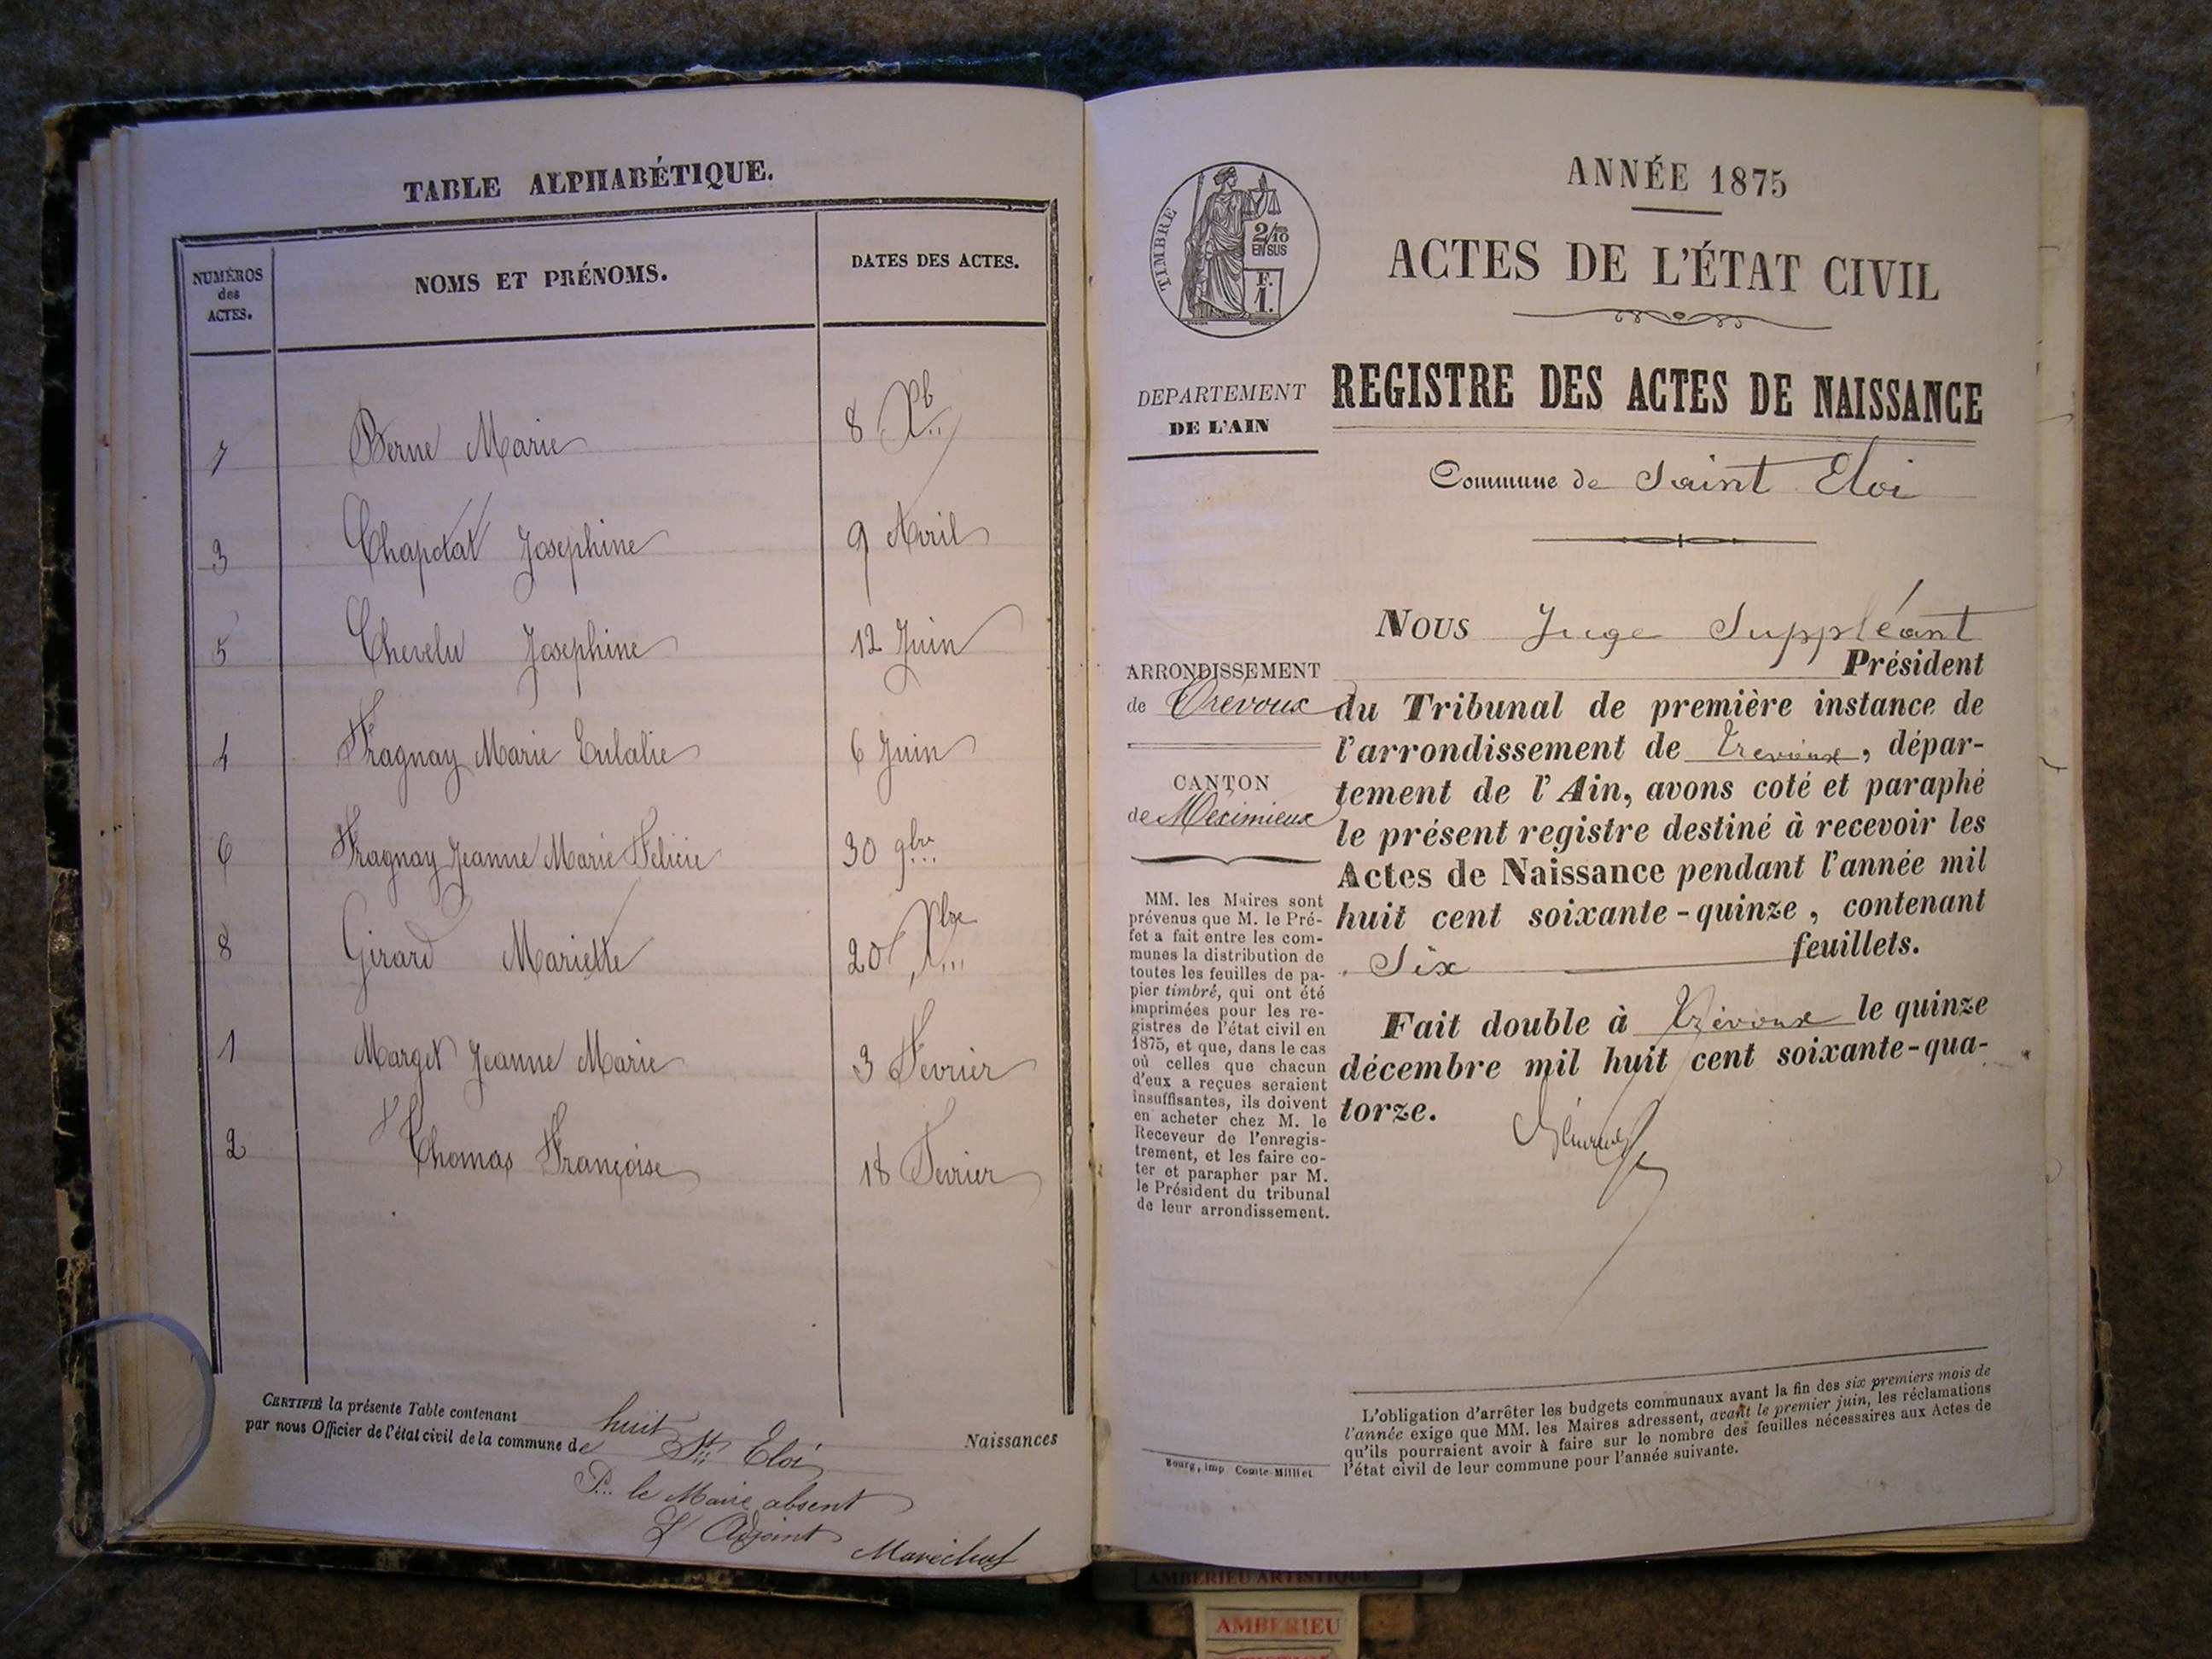 TABLE ALPHABÉTIQUE.
NUMÉROS
des
ACTES.
NOMS ET PRÉNOMS.
DATES DES ACTES.
7 Berne Marie 8 Xb
3 Chapolat Josephine 9 Avril
5 Chevelu Josephine 12 Juin
4 Fragnay Marie Eulalie 6 Juin
6 Fragnay Jeanne Marie Felicie 30 9bre
8 Girard Mariette 20 Xbre
1 Marget Jeanne Marie 3 Fevrier
2 Thomas Françoise 18 Fevrier
CERTIFIÉ la présente Table contenant huit Naissances
par nous Officier de l'état civil de la commune de St Eloi
P... le Maire absent
L'Adjoint Maréchal
TIMBRE
2/10
EN SUS
F.
1.
ANNÉE 1875
ACTES DE L'ÉTAT CIVIL
DEPARTEMENT
DE L'AIN
REGISTRE DES ACTES DE NAISSANCE
Commune de Saint Eloi
ARRONDISSEMENT
de Trevoux
CANTON
de Meximieux
MM. les Maires sont
prévenus que M. le Pré-
fet a fait entre les com-
munes la distribution de
toutes les feuilles de pa-
pier timbré, qui ont été
imprimées pour les re-
gistres de l'état civil en
1875, et que, dans le cas
où celles que chacun
d'eux a reçues seraient
insuffisantes, ils doivent
en acheter chez M. le
Receveur de l'enregis-
trement, et les faire co-
ter et parapher par M.
le Président du tribunal
de leur arrondissement.
Bourg, imp Comte-Milliet
NOUS Juge Suppléant
Président
du Tribunal de première instance de
l'arrondissement de Trevoux, dépar-
tement de l'Ain, avons coté et paraphé
le présent registre destiné à recevoir les
Actes de Naissance pendant l'année mil
huit cent soixante-quinze, contenant
Six feuillets.
Fait double à Trévoux le quinze
décembre mil huit cent soixante-qua-
torze.
L'obligation d'arrêter les budgets communaux avant la fin des six premiers mois de
l'année exige que MM. les Maires adressent, avant le premier juin, les réclamations
qu'ils pourraient avoir à faire sur le nombre des feuilles nécessaires aux Actes de
l'état civil de leur commune pour l'année suivante.
AMBERIEU ARTISTIQUE
AMBERIEU